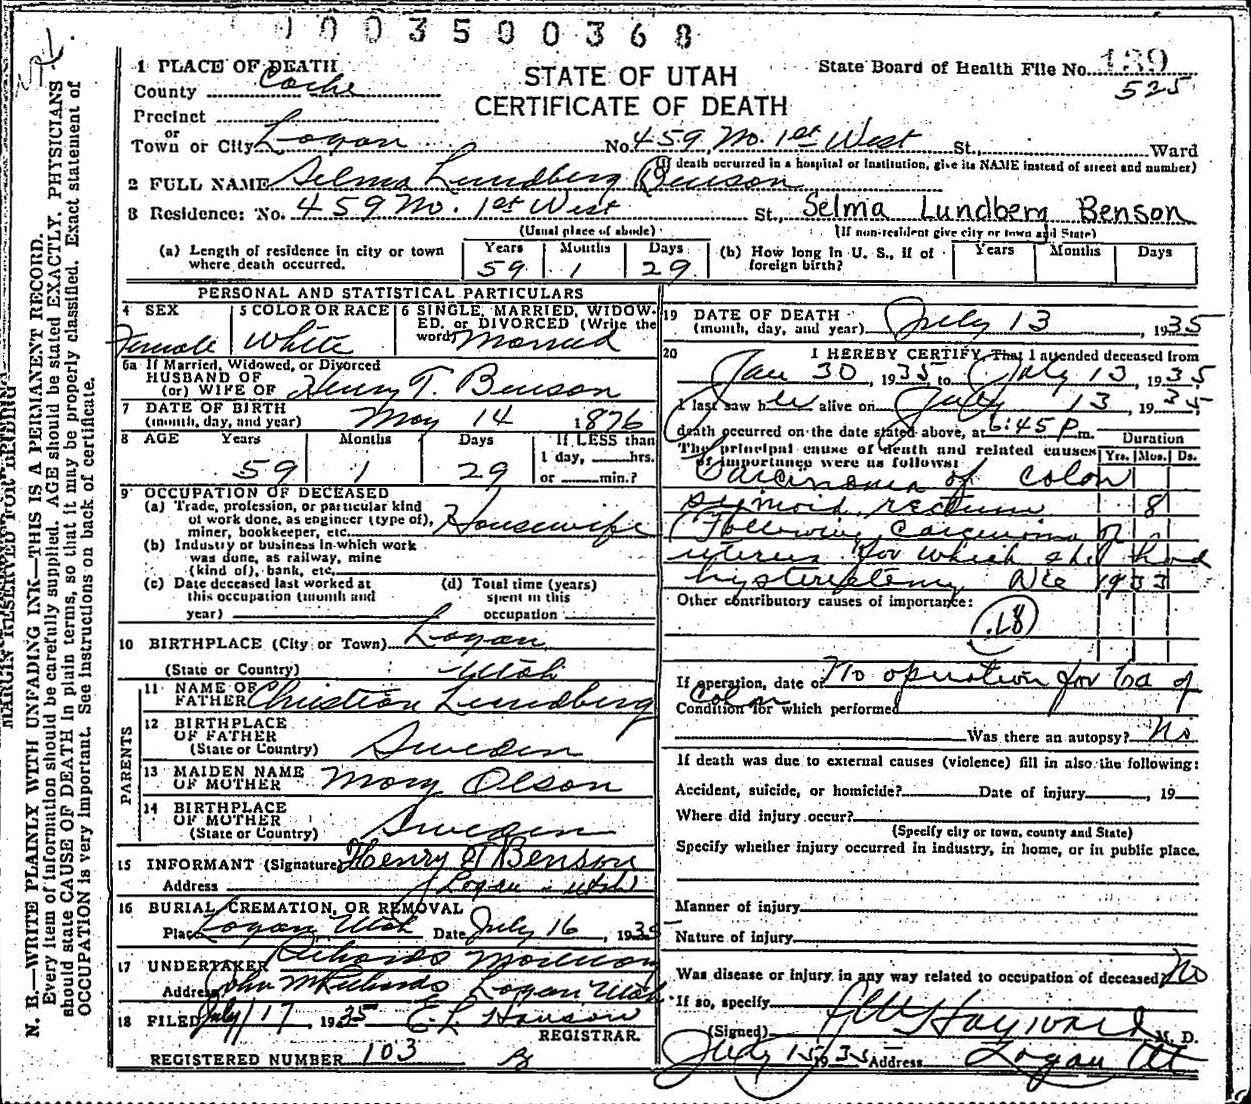 1003500368
1 PLACE OF DEATH
County Cache
Precinct
or
Town or City Logan No. 459 No. 1st West St. Ward
STATE OF UTAH
CERTIFICATE OF DEATH
State Board of Health File No. 139
525
(If death occurred in a hospital or institution, give its NAME instead of street and number)
2 FULL NAME Selma Lundberg Benson
3 Residence: No. 459 No. 1st West St., Selma Lundberg Benson
(Usual place of abode) (If non-resident give city or town and State)
(a) Length of residence in city or town where death occurred. Years 59 Months 1 Days 29
(b) How long in U. S., if of foreign birth? Years Months Days
PERSONAL AND STATISTICAL PARTICULARS
4 SEX Female
5 COLOR OR RACE White
6 SINGLE, MARRIED, WIDOWED, or DIVORCED (Write the word) Married
6a If Married, Widowed, or Divorced
HUSBAND OF
(or) WIFE OF Henry T. Benson
7 DATE OF BIRTH
(month, day, and year) May 14 1876
8 AGE Years 59 Months 1 Days 29 If LESS than 1 day, hrs. or min.?
9 OCCUPATION OF DECEASED
(a) Trade, profession, or particular kind of work done, as engineer (type of), miner, bookkeeper, etc. Housewife
(b) Industry or business in which work was done, as railway, mine (kind of), bank, etc.
(c) Date deceased last worked at this occupation (month and year)
(d) Total time (years) spent in this occupation
10 BIRTHPLACE (City or Town) Logan
(State or Country) Utah
PARENTS
11 NAME OF FATHER Christian Lundberg
12 BIRTHPLACE OF FATHER
(State or Country) Sweden
13 MAIDEN NAME OF MOTHER Mary Olson
14 BIRTHPLACE OF MOTHER
(State or Country) Sweden
15 INFORMANT (Signature) Henry T Benson
Address Logan - Utah
16 BURIAL, CREMATION, OR REMOVAL
Place Logan Utah Date July 16, 1935
17 UNDERTAKER Richards Mortuary
Address John M Richards Logan Utah
18 FILED July 17, 1935 E. L. Hanson
REGISTRAR.
REGISTERED NUMBER 103
19 DATE OF DEATH
(month, day, and year) July 13, 1935
20 I HEREBY CERTIFY, That I attended deceased from
Jan 30, 1935 to July 13, 1935
I last saw her alive on July 13, 1935
death occurred on the date stated above, at 6:45 P m.
The principal cause of death and related causes of importance were as follows:
Duration
Yrs. Mos. Ds.
Carcinoma of colon
sigmoid, rectum 8
Following Carcinoma of
uterus for which she had
hysterectomy Dec 1933
Other contributory causes of importance:
.18
If operation, date of No operation for Ca of
Condition for which performed Colon
Was there an autopsy? No
If death was due to external causes (violence) fill in also the following:
Accident, suicide, or homicide? Date of injury, 19
Where did injury occur?
(Specify city or town, county and State)
Specify whether injury occurred in industry, in home, or in public place.
Manner of injury
Nature of injury
Was disease or injury in any way related to occupation of deceased? No
If so, specify
(Signed) Hayward M. D.
July 15 1935 Address Logan Ut
MARGIN RESERVED FOR BINDING
N. B.—WRITE PLAINLY WITH UNFADING INK—THIS IS A PERMANENT RECORD.
Every item of information should be carefully supplied. AGE should be stated EXACTLY. PHYSICIANS
should state CAUSE OF DEATH in plain terms, so that it may be properly classified. Exact statement of
OCCUPATION is very important. See instructions on back of certificate.